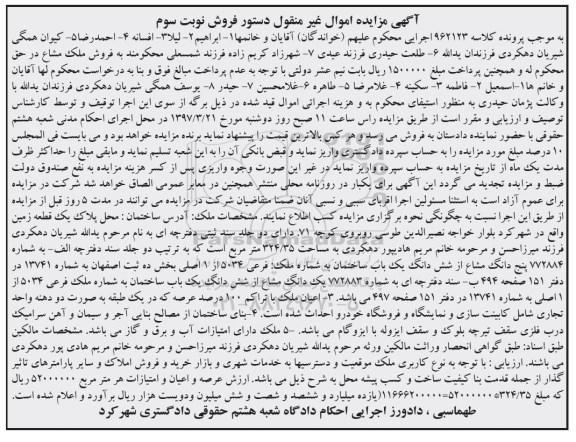 آگهی مزایده اموال غیر منقول دستور فروش نوبت سوم
به موجب پرونده کلاسه ۹۶۲۱۲۳اجرایی محکوم علیهم (خواندگان) آقایان و خانمها۱- ابراهیم۲- لیلا۳- افسانه ۴- احمدرضا۵- کیوان همگی
شیریان دهکردی فرزندان یدالله ۶- طلعت حیدری فرزند عیدی ۷- شهرزاد کریم زاده فرزند شمسعلی محکومند به فروش ملک مشاع در حق
محکوم له و همچنین پرداخت مبلغ ۱۵۰۰۰۰۰ ریال بابت نیم عشر دولتی با توجه به عدم پرداخت مبالغ فوق و بنا به درخواست محکوم لها آقایان
و خانم ها۱-اسمعیل ۲- فاطمه ۳- سکینه ۴- غلامرضا ۵- طاهره ۶-غلامحسین ۷- حیدر ۸- یوسف همگی شیریان دهکردی فرزندان یدالله با
وکالت پژمان حیدری به منظور استیفای محکوم به و هزینه اجرائی اموال قید شده در ذیل برگه از سوی این اجرا توقیف و توسط کارشناس
توصیف و ارزیابی و مقرر است از طریق مزایده راس ساعت ۱۱ صبح روز دوشنبه مورخ ۱۳۹۷/۳/۲۱ در محل اجرای احکام مدنی شعبه هشتم
حقوقی با حضور نماینده دادستان به فروش می رسد و هر کس بالاترین قیمت را پیشنهاد نماید برنده مزایده خواهد بود و می بایست فی المجلس
۱۰ درصد مبلغ مورد مزایده را به حساب سپرده دادگستری واریز نماید و قبض بانکی آن را به این شعبه تسلیم نماید و مابقی مبلغ را حداکثر ظرف
مدت یک ماه از تاریخ مزایده به حساب سپرده واریز نماید در غیر این صورت وجوه واریزی پس از کسر هزینه مزایده به نفع صندوق دولت
ضبط و مزایده تجدید می گردد این آگهی برای یکبار در روزنامه محلی منتشر همچنین در معابر عمومی الصاق خواهد شد شرکت در مزایده
برای عموم آزاد است به استثنا مسئولین اجرا اقربای سببی و نسبی آنان ضمنا متقاضیان شرکت در مزایده می توانند در مدت ۵ روز قبل از مزایده
از طریق این اجرا نسبت به چگونگی نحوه برگزاری مزایده کسب اطلاع نمایند. مشخصات ملک: آدرس ساختمان : محل پلاک یک قطعه زمین
واقع در شهرکرد بلوار خواجه نصیرالدین طوسی روبروی کوچه ۷۱ دارای دو جلد سند ثبتی دفترچه ای به نام مرحوم یدالله شیریان دهکردی
فرزند میرزاحسن و مرحومه خانم مریم هادیپور دهکردی به مساحت ۳۲۴/۳۵ متر مربع است که به ترتیب دو جلد سند دفترچه الف- به شماره
۷۷۲۸۸۴ پنج دانگ مشاع از شش دانگ یک باب ساختمان به شماره ملک: فرعی ۵۰۳۴ از ۱ اصلی بخش ده ثبت اصفهان به شماره ۱۳۷۴۱ در
دفتر ۱۵۱ صفحه ۴۹۴ ب- سند دفترچه ای به شماره ۷۷۲۸۸۳ یک دانگ مشاع از شش دانگ یک باب ساختمان به شماره ملک فرعی ۵۰۳۴ از
۱ اصلی به شماره ۱۳۷۴۱ در دفتر ۱۵۱ صفحه ۴۹۷ می باشد. ۳-اعیان ملک با تراکم ۱۰۰ درصد عرصه که در یک طبقه به صورت دو دهنه واحد
تجاری شامل کابینت سازی و نمایشگاه و فروشگاه خودرو احداث شده است. ۴-بنای ساختمان از مصالح بنایی آجر و سیمان و آهن سرامیک
درب فلزی سقف تیرچه بلوک و سقف ایزوله با ایزوگام می باشد. -۵ ملک دارای امتیازات آب و برق و گاز می باشد. مشخصات مالکین
طبق اسناد: طبق گواهی انحصار وراثت مالکین ورثه مرحوم یدالله شیریان دهکردی فرزند میرزاحسن و مرحومه خانم مریم هادی پور دهکردی
می باشند. ارزیابی : با توجه به نوع کاربری ملک موقعیت و دسترسیها به خدمات شهری و بازار خرید و فروش املاک و سایر پارامترهای تاثیر
گذار از جمله قدمت بنا کیفیت ساخت و کسب پیشه محل به شرح ذیل می باشد. ارزش عرصه و اعیان و امتیازات هر متر مربع ۵۲۰۰۰۰۰۰ ریال
که مبلغ ۳۲۴/۳۵*۵۲۰۰۰۰۰۰=۱۱۶۶۶۲۰۰۰۰۰(یازده میلیارد و ششصد و شصت و شش میلیون ودویست هزار ریال برآورد و اعلام شده است.
طهماسبی ، دادورز اجرایی احکام دادگاه شعبه هشتم حقوقی دادگستری شهرکرد